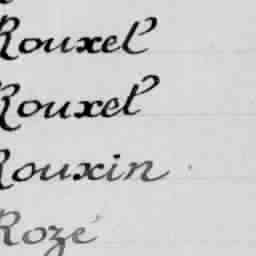 Rouxel
Rouxel
Rouxin
Rozé